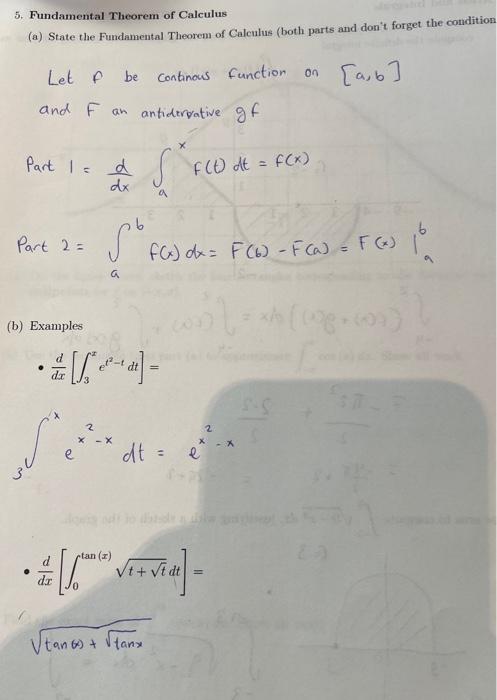 5. Fundamental Theorem of Calculus
(a) State the Fundamental Theorem of Calculus (both parts and don't forget the condition
Let f be continous function on [a,b]
and F an antidervative of f
Part 1 = d/dx ∫_a^x f(t) dt = f(x)
Part 2 = ∫_a^b f(x) dx = F(b) - F(a) = F(x) |_a^b
(b) Examples
• d/dx [∫_3^x e^{t^2-t} dt] =
∫_3^x e^{x^2-x} dt = e^{x^2-x}
• d/dx [∫_0^{tan (x)} √(t + √t) dt] =
√(tan(x) + √(tanx))